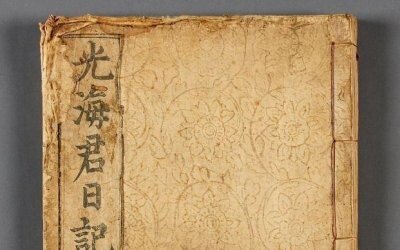 光海君日記